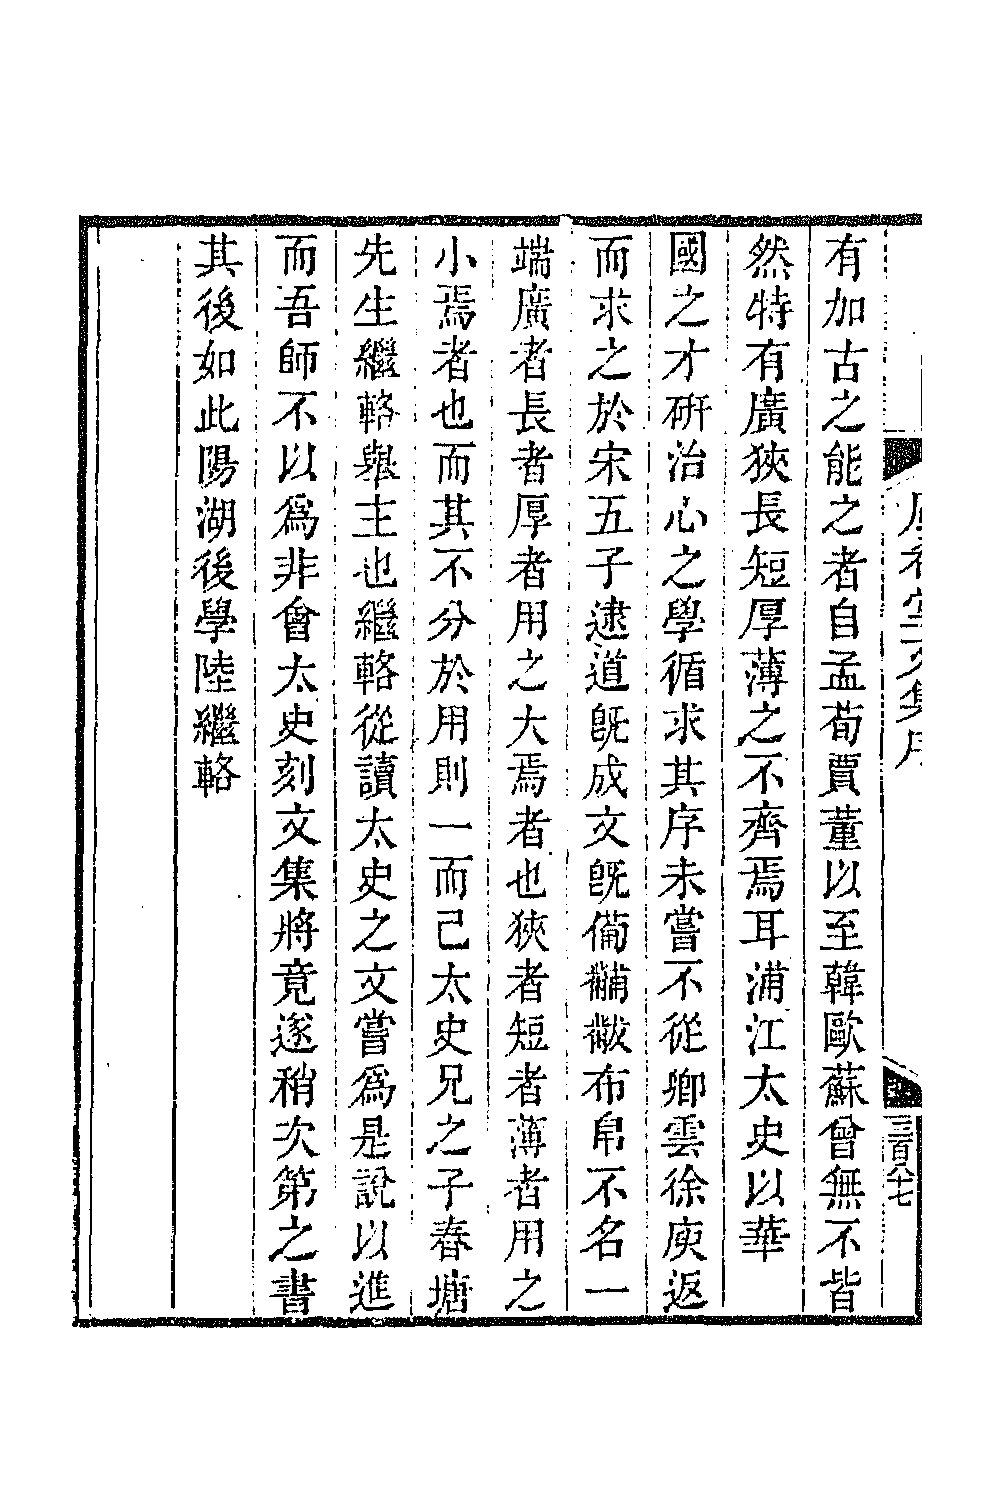 有加古之能之者自孟荀賈董以至韓歐蘇曾無不皆
然特有廣狹長短厚薄之不齊焉耳浦江太史以華
國之才硏治心之學循求其序未嘗不從卿雲徐庾返
而求之於宋五子逮道旣成文旣僃黼黻布帛不名一
端廣者長者厚者用之大焉者也狹者短者薄者用之
小焉者也而其不分於用則一而己太史兄之子春塘
先生繼輅舉主也繼輅從讀太史之文嘗爲是說以進
而吾師不以爲非會太史刻文集將竟遂稍次第之書
其後如此陽湖後學陸繼輅
文集序
三百八十七